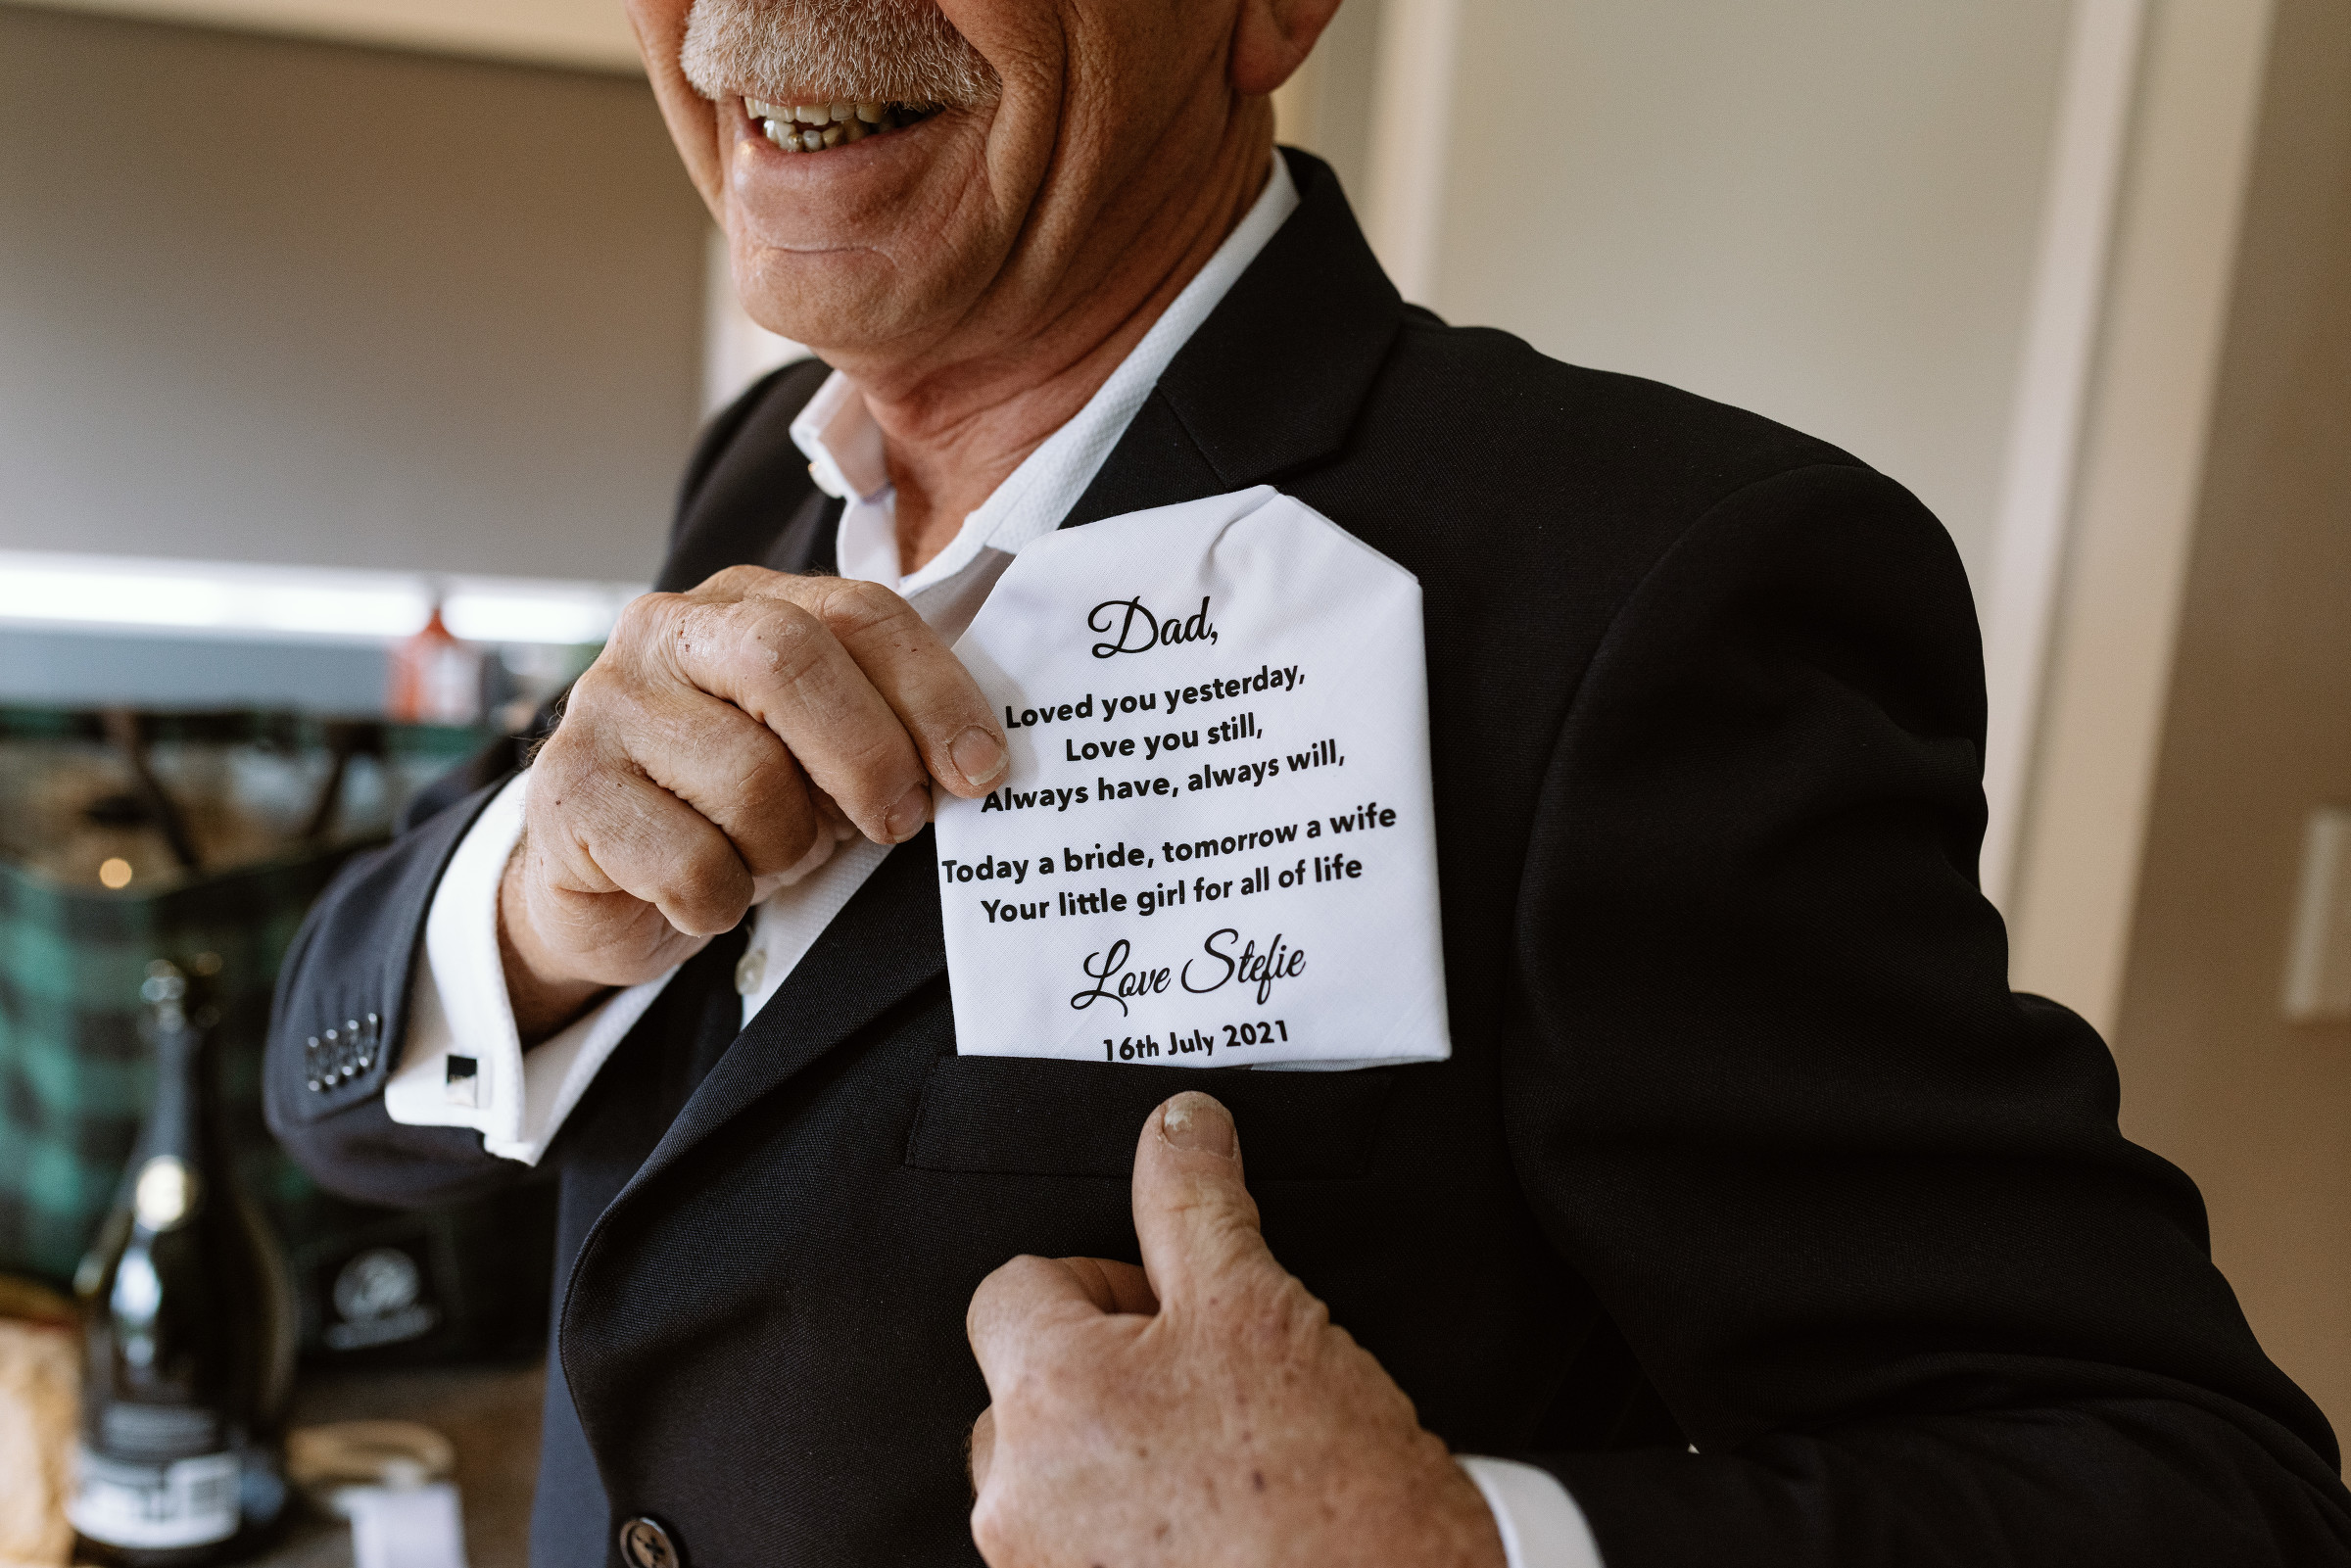 Dad,
Loved you yesterday,
Love you still,
Always have, always will,
Today a bride, tomorrow a wife
Your little girl for all of life
Love Stefie
16th July 2021